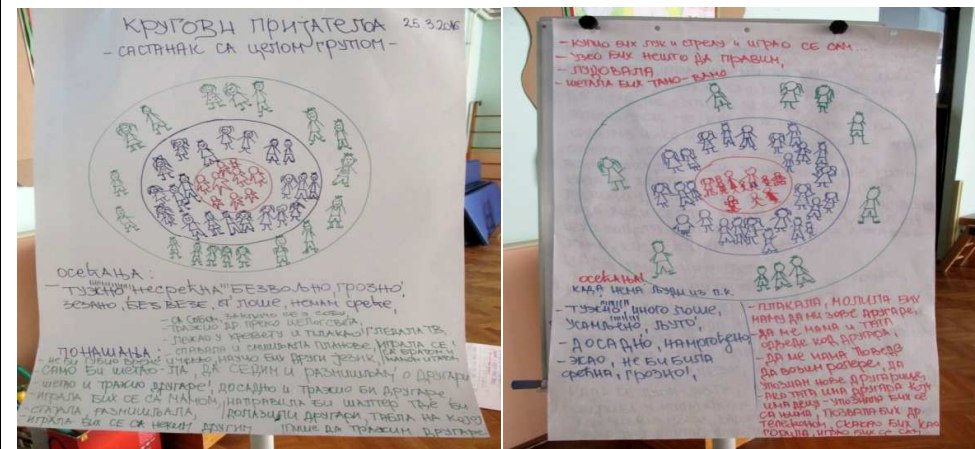 КРУГОВИ ПРИЈАТЕЉА 25.3.2016
- САСТАНАК СА ЦЕЛОМ ГРУПОМ -
ОСЕЋАЊА:
- ТУЖНО, НЕСРЕЋНА, БЕЗВОЉНО, ГРОЗНО,
ЗЕЗАНО, БЕЗ ВЕЗЕ, ЛОШЕ, НЕМАМ СРЕЋЕ,
- СА СОБОМ,
- ТРАЖИО ДР. ПРЕКО ЦЕЛОГ СВЕТА,
ЛЕЖАО У КРЕВЕТУ И ПЛАКАО, ГЛЕДАЛА ТВ,
ПОНАШАЊА: - СПАВАЛА И СМИШЉАЛА ПЛАНОВЕ, ИГРАЛА СЕ
- НЕ БИ ГУБИО ВРЕМЕ И ЧЕКАО, НАУЧИО БИХ ДРУГИ ЈЕЗИК,
САМО БИ ШЕТАО-ЛА, ДА СЕДИМ И РАЗМИШЉАМ О ДРУГАРИ
- ШЕТАО И ТРАЖИО ДРУГАРЕ, ДОСАДНО И ТРАЖИО БИ ДРУГАРЕ
- ИГРАЛА БИХ СЕ СА МАМОМ, НАПРАВИЛА БИ ШАТОР ГДЕ БИ
- СПАВАЛА, РАЗМИШЉАЛА, ДОЛАЗИЛИ ДРУГАРИ, ТАБЛА НА КОЈОЈ
ИГРАЛА БИХ СЕ СА НЕКИМ ДРУГИМ ПИШЕ ДА ТРАЖИМ ДРУГАРЕ
- КУПИО БИХ ЛУК И СТРЕЛУ И ИГРАО СЕ САМ
- УЗЕО БИХ НЕШТО ДА ПРАВИМ,
- ЛУДОВАЛА
- ШЕТАЛА БИХ ТАМО-ВАМО
ОСЕЋАЊА!
КАДА НЕМА ЉУДИ ИЗ П.К.
- ТУЖНО, МНОГО ЛОШЕ,
УСАМЉЕНО, ЉУТО,
- ДОСАДНО, НАМРГОЂЕНО,
- ЖАО, НЕ БИ БИЛА
СРЕЋНА, ГРОЗНО!,
- ПЛАКАЛА, МОЛИЛА БИХ
МАМУ ДА МИ ЗОВЕ ДРУГАРЕ,
- ДА МЕ МАМА И ТАТА
ОДВЕДЕ КОД ДРУГАРА,
- ДА МЕ МАМА ПОВЕДЕ
ДА ВОЗИМ РОЛЕРЕ, ДА
УПОЗНАМ НОВЕ ДРУГАРИЦЕ,
- АКО ТАТА ИМА ДРУГАРА КОЈИ
ИМА ДЕЦУ - УПОЗНАЛА БИХ СЕ
СА ЊИМА, ПОЗВАЛА БИХ ДР.
ТЕЛЕФОНОМ, СКАКАО БИХ КАО
ГОРИЛА, ИГРАО БИХ СЕ САМ